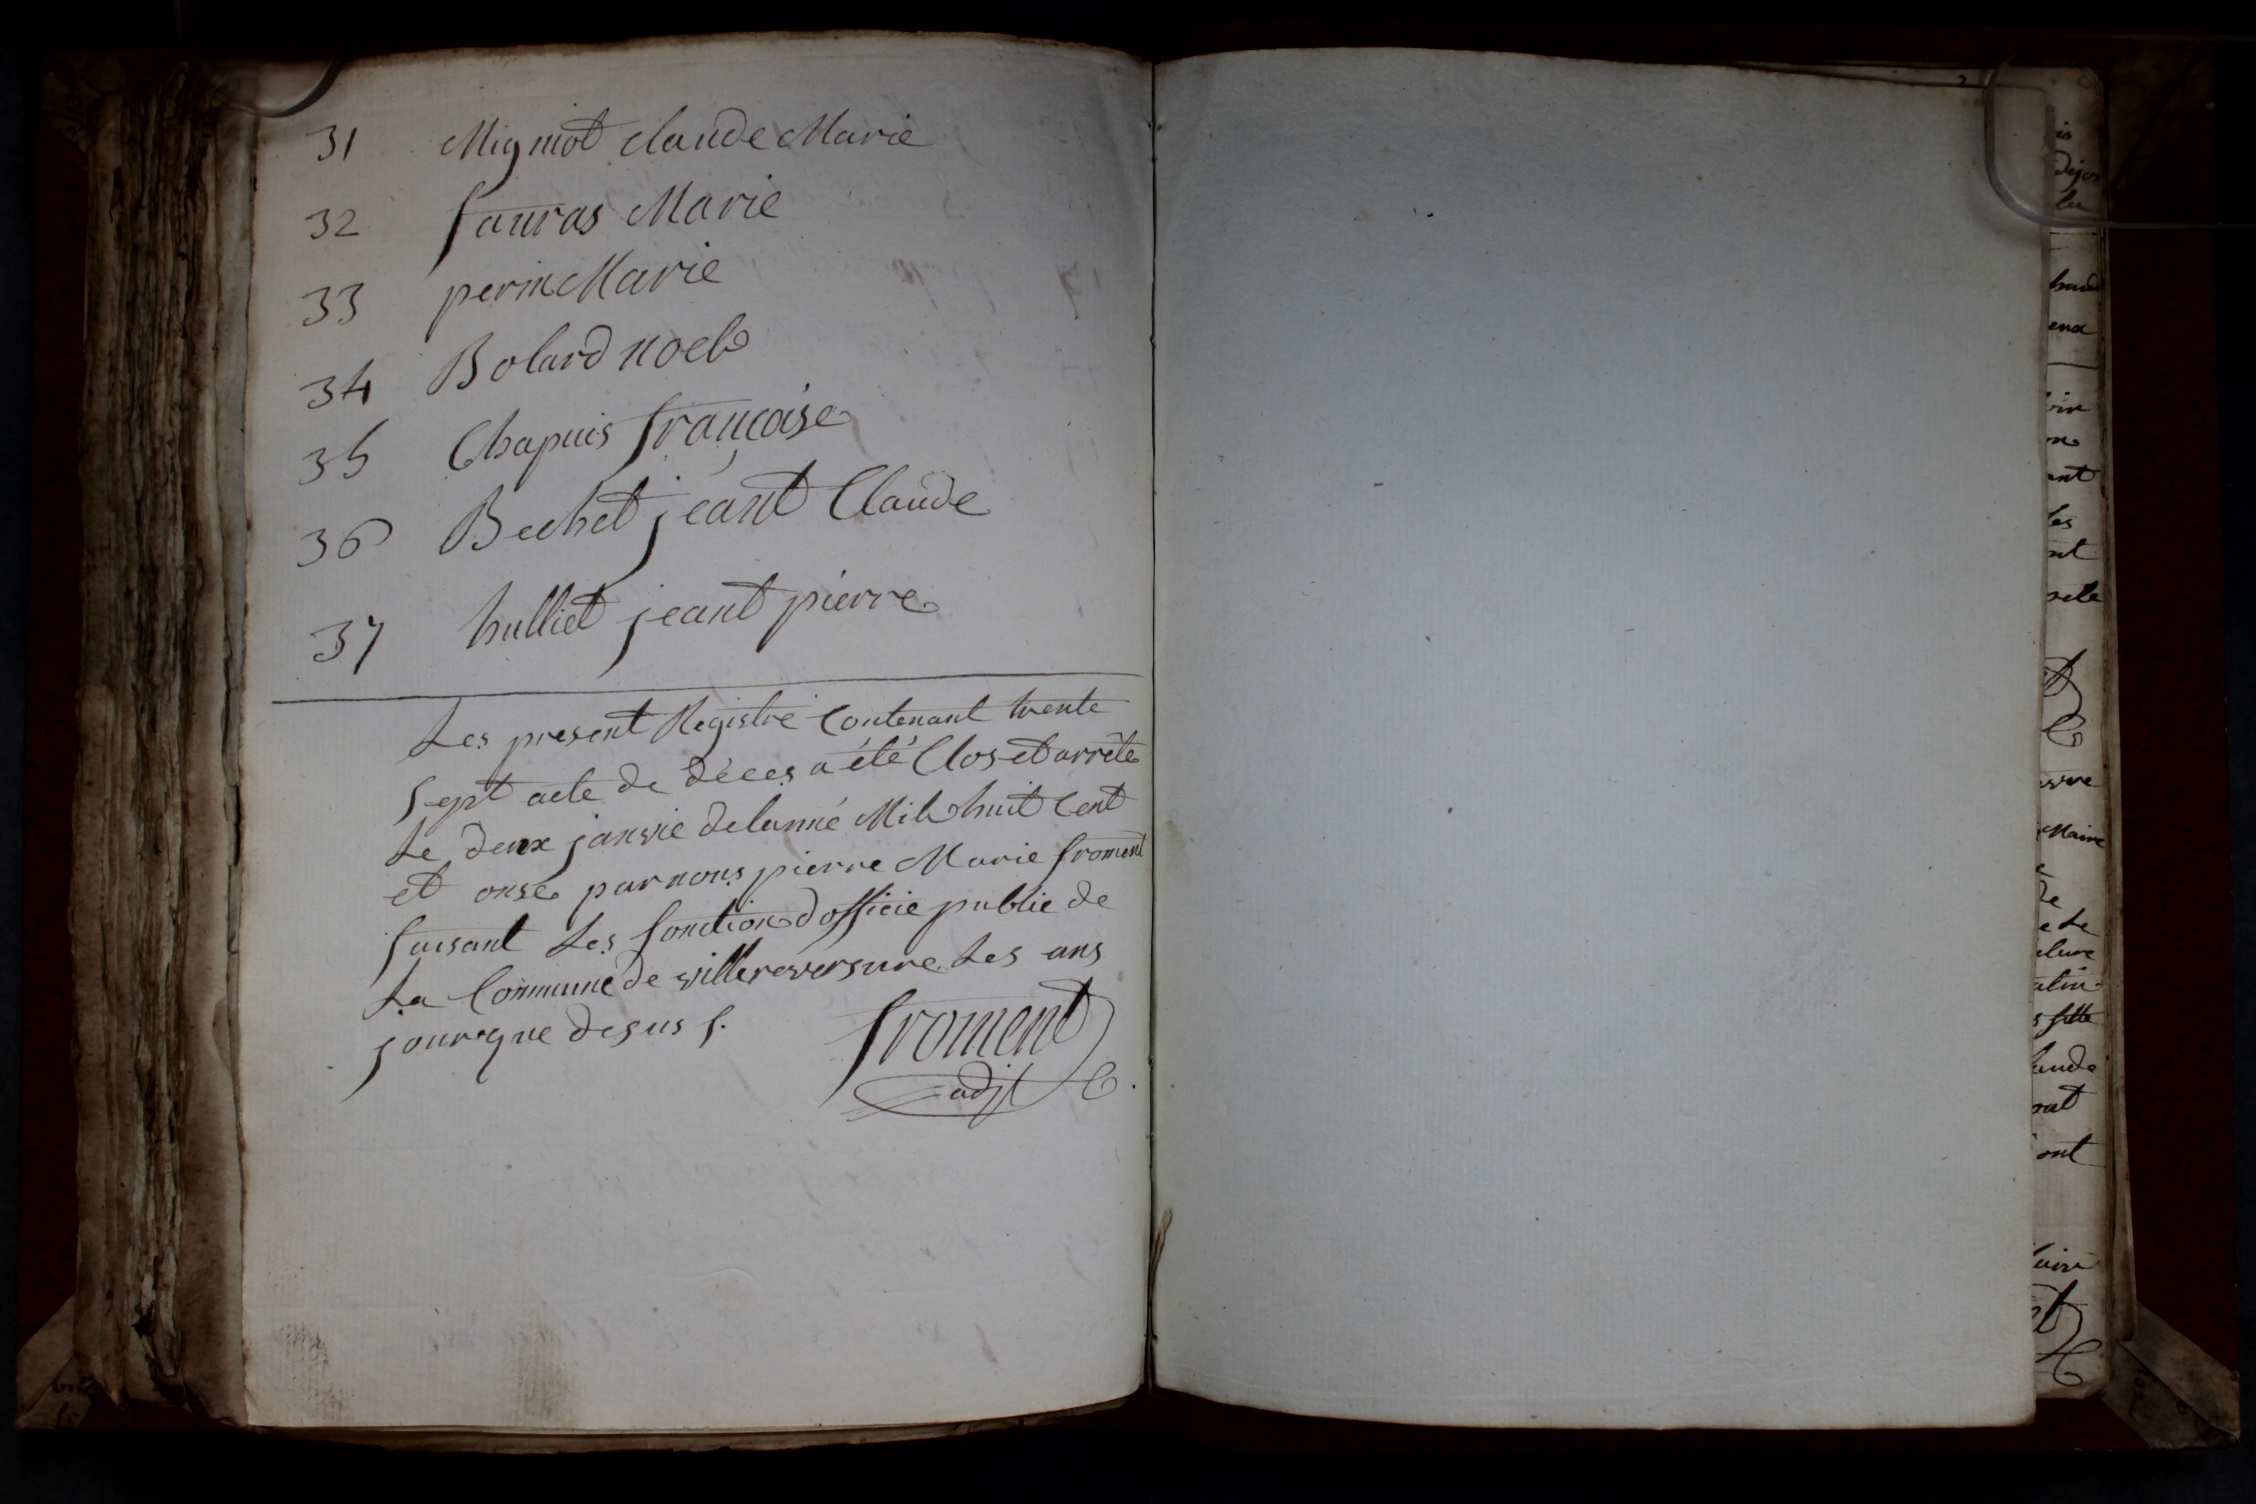 31 Migniot claude Marie
32 fauras Marie
33 perin Marie
34 Bolard noel
35 Chapuis françoise
36 Bechet jeant Claude
37 hulliet jeant pierre
Les present Registre Contenant trente
sept acte de déces a été Clos et arrête
Le deux janvie de lanné Mil huit Cent
et onse par nous pierre Marie froment
faisant Les fonction d officie public de
La Commune de villereversure Les ans
jour que desus s.
froment
adjt
is
dijon
la
ena
oir
ant
les
nt
Maire
e Le
s fille
aude
ont